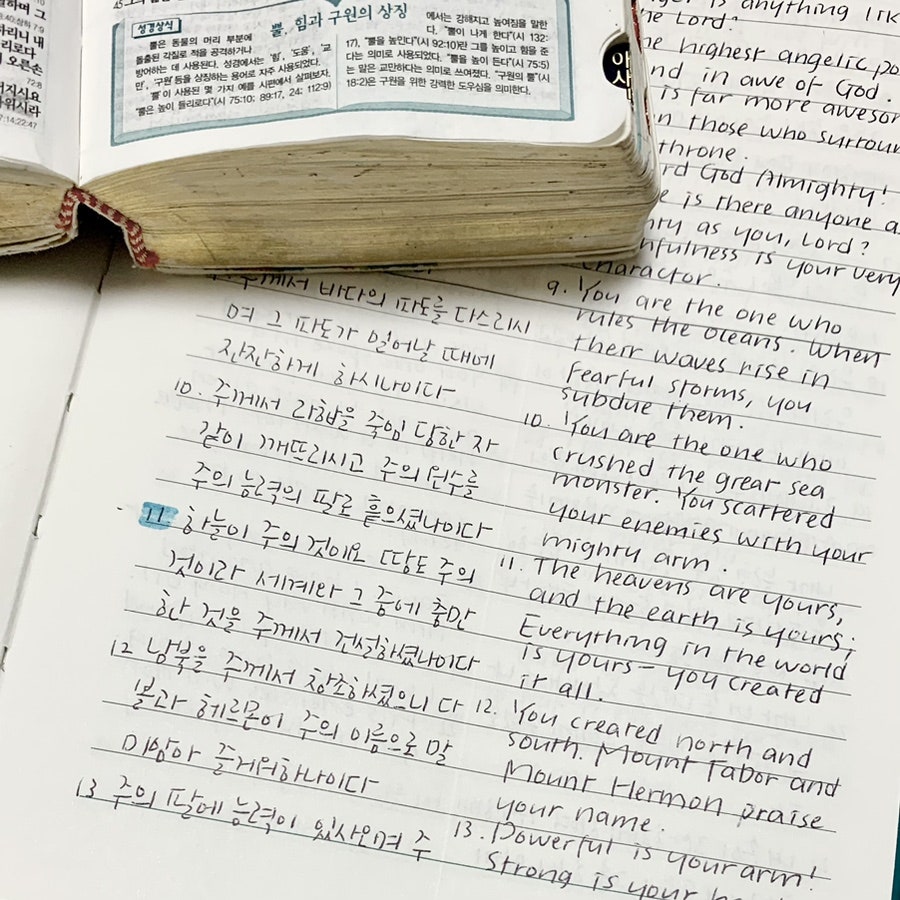 성경상식
뿔, 힘과 구원의 상징
뿔은 동물의 머리 부분에
돌출된 각질로 적을 공격하거나
방어하는 데 사용된다. 성경에서는 '힘', '도움', '교
만', '구원' 등을 상징하는 용어로 자주 사용되었다.
'뿔'이 사용된 몇 가지 예를 시편에서 살펴보자.
"뿔은 높이 들리로다"(시 75:10; 89:17, 24; 112:9)
에서는 강해지고 높여짐을 말한
다. "뿔이 나게 한다"(시 132:
17), "뿔을 높인다"(시 92:10)란 그를 높이고 힘을 준
다는 의미로 사용되었다. "뿔을 높이 든다"(시 75:5)
는 말은 교만하다는 의미로 쓰여졌다. "구원의 뿔"(시
18:2)은 구원을 위한 강력한 도우심을 의미한다.
주께서 바다의 파도를 다스리시
며 그 파도가 일어날 때에
잔잔하게 하시나이다
10. 주께서 라합을 죽임 당한 자
같이 깨뜨리시고 주의 원수를
주의 능력의 팔로 흩으셨나이다
11 하늘이 주의 것이요 땅도 주의
것이라 세계와 그 중에 충만
한 것을 주께서 건설하셨나이다
12 남북을 주께서 창조하셨으니 다
볼과 헤르몬이 주의 이름으로 말
미암아 즐거워하나이다
13 주의 팔에 능력이 있사오며 주
is anything lik
the Lord?
highest angelic po
nd in awe of God.
is far more awesom
n those who surroun
throne.
rd God Almighty!
e is there anyone a
hty as you, Lord?
hfulness is your very
charactor.
9. You are the one who
rules the oceans. When
their waves rise in
fearful storms, you
subdue them.
10. You are the one who
crushed the great sea
monster. You scattered
your enemies with your
mighty arm.
11. The heavens are yours,
and the earth is yours;
Everything in the world
is yours - you created
it all.
12. You created north and
south. Mount Tabor and
Mount Hermon praise
your name.
13. Powerful is your arm!
strong is your